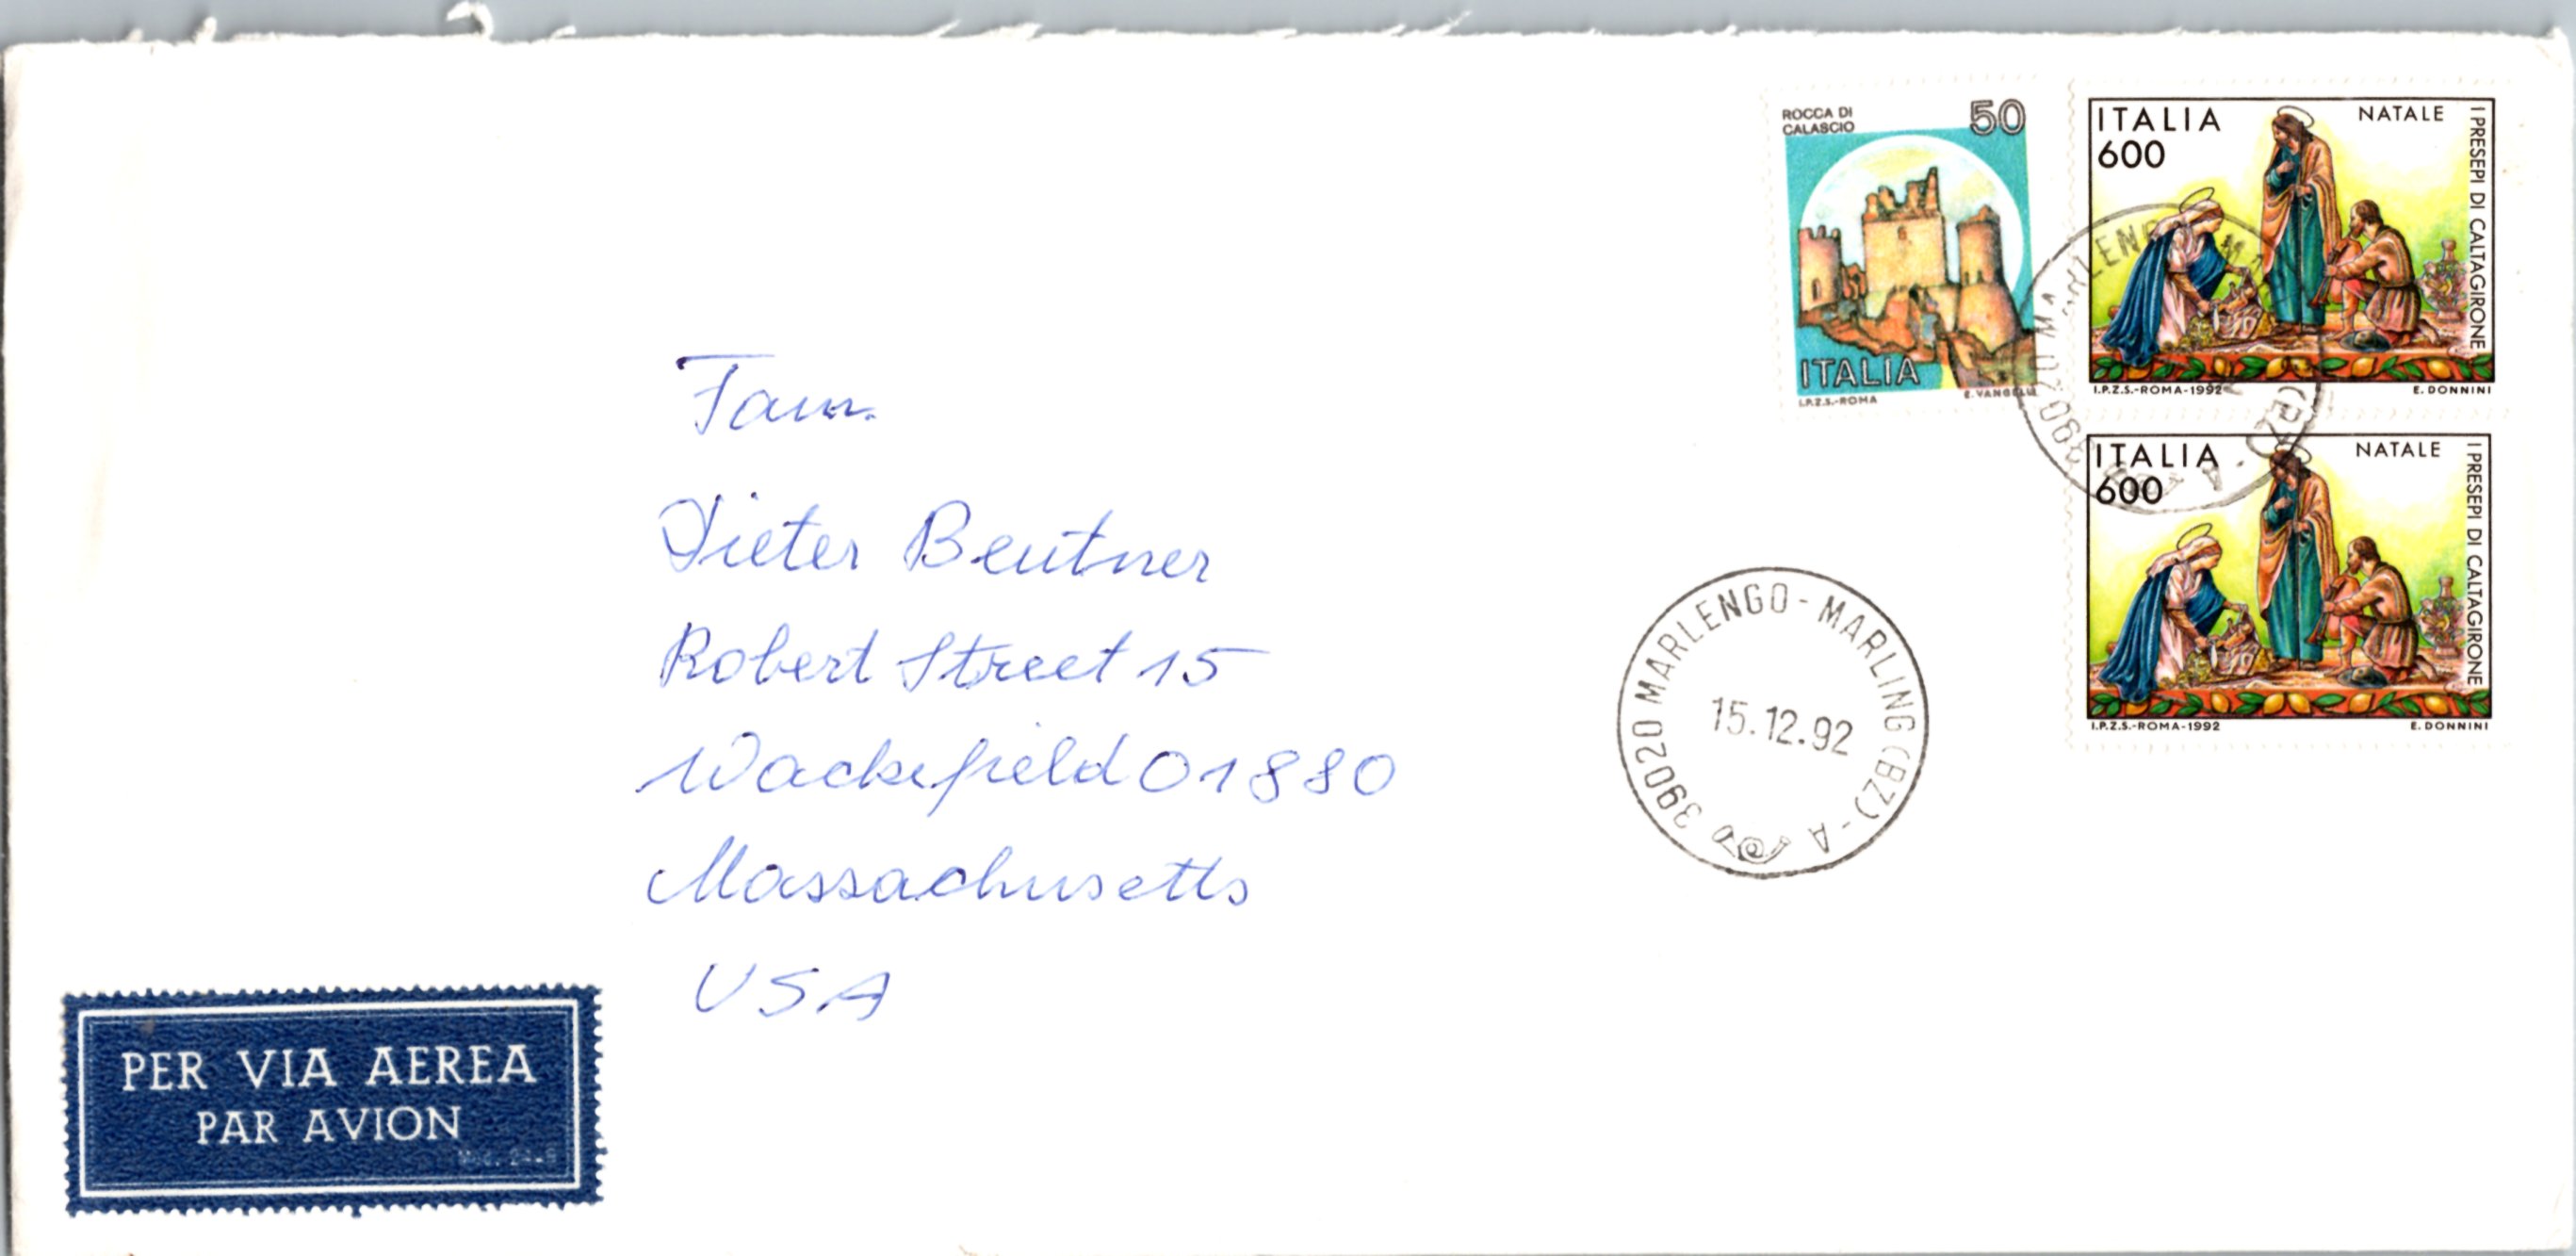 ROCCA DI
CALASCIO
50
ITALIA
I.P.Z.S.-ROMA
E. VANGELLI
ITALIA
600
NATALE
I PRESEPI DI CALTAGIRONE
I.P.Z.S.-ROMA-1992
E. DONNINI
ITALIA
600
NATALE
I PRESEPI DI CALTAGIRONE
I.P.Z.S.-ROMA-1992
E. DONNINI
39020 MARLENGO-MARLING (BZ)-A
15.12.92
Fam.
Dieter Beutner
Robert Street 15
Wackefield 01880
Massachusetts
USA
PER VIA AEREA
PAR AVION